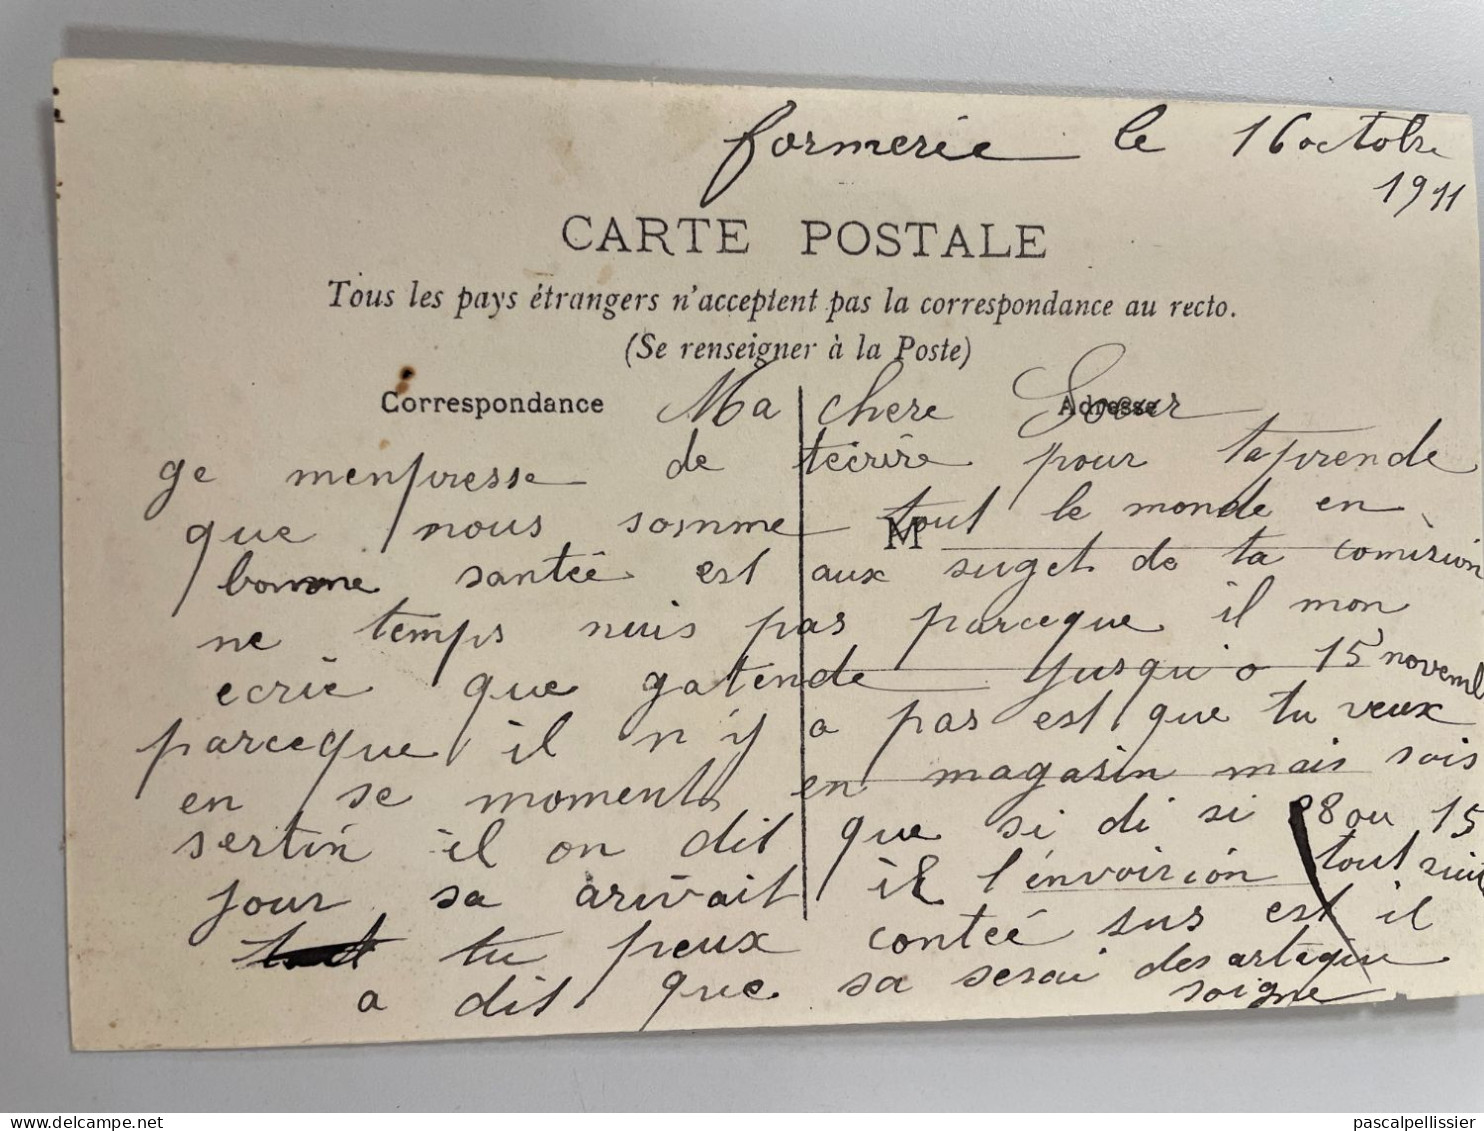 formerie le 16 octobre
1911
CARTE POSTALE
Tous les pays étrangers n'acceptent pas la correspondance au recto.
(Se renseigner à la Poste)
Correspondance
Adresse
Ma chere Soeur
ge menpresse de tecrire pour taprende
que nous somme tout le monde en
M
bonne santée est aux suget de ta comision
ne temps nuis pas parceque il mon
ecrie que gatende jusqu'o 15 novemb
parceque il n'y a pas est que tu veux
en se moment en magasin mais sois
sertin il on dit que si di si 8 ou 15
jour sa arivait il l'envoirion tout suit
tu peux contée sus est il
a dit que sa serai des artique
soigne
pascalpellissier